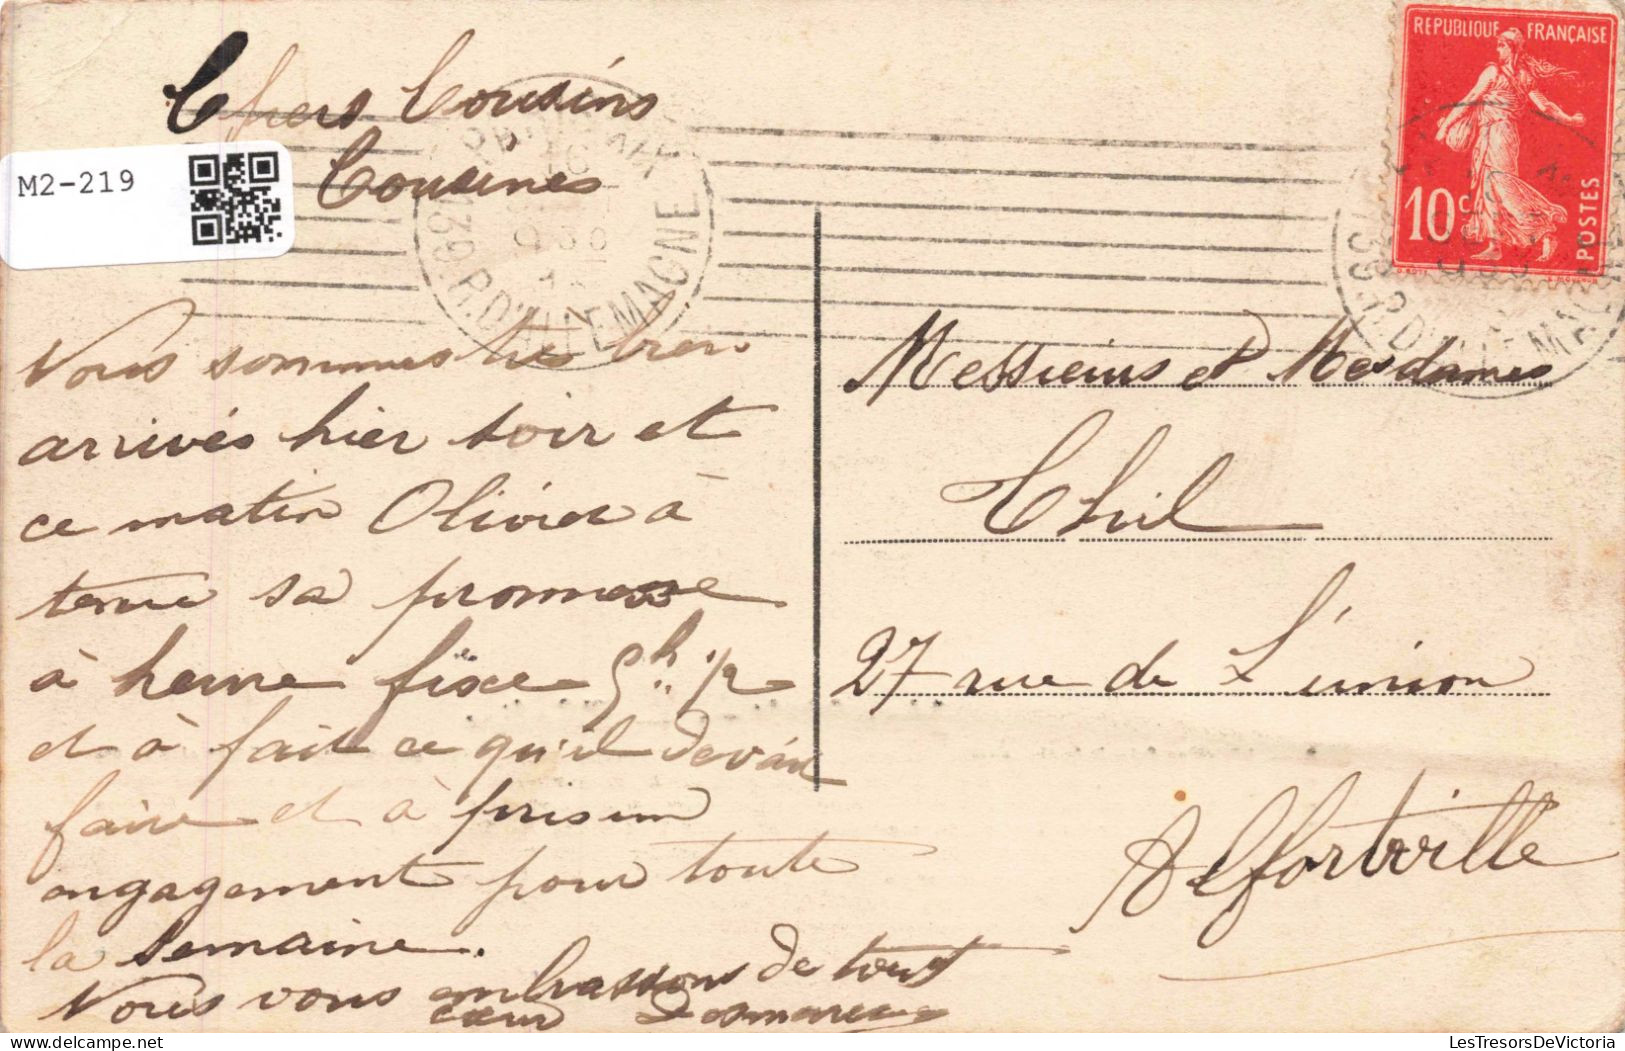 Chers Cousins
Cousines
M2-219
REPUBLIQUE FRANÇAISE
10 c
POSTES
R. D'ALLEMAGNE
Nous sommes très bien
arrivés hier soir et
ce matin Olivier à
tenue sa promesse
à heure fixe 5h 1/2
et à fait ce qu'il devait
faire et à pris un
engagement pour toute
la semaine.
Nous vous embrassons de tout
cœur
Messieurs et Mesdames
Thil
27 rue de L'union
Alfortville
LesTresorsDeVictoria